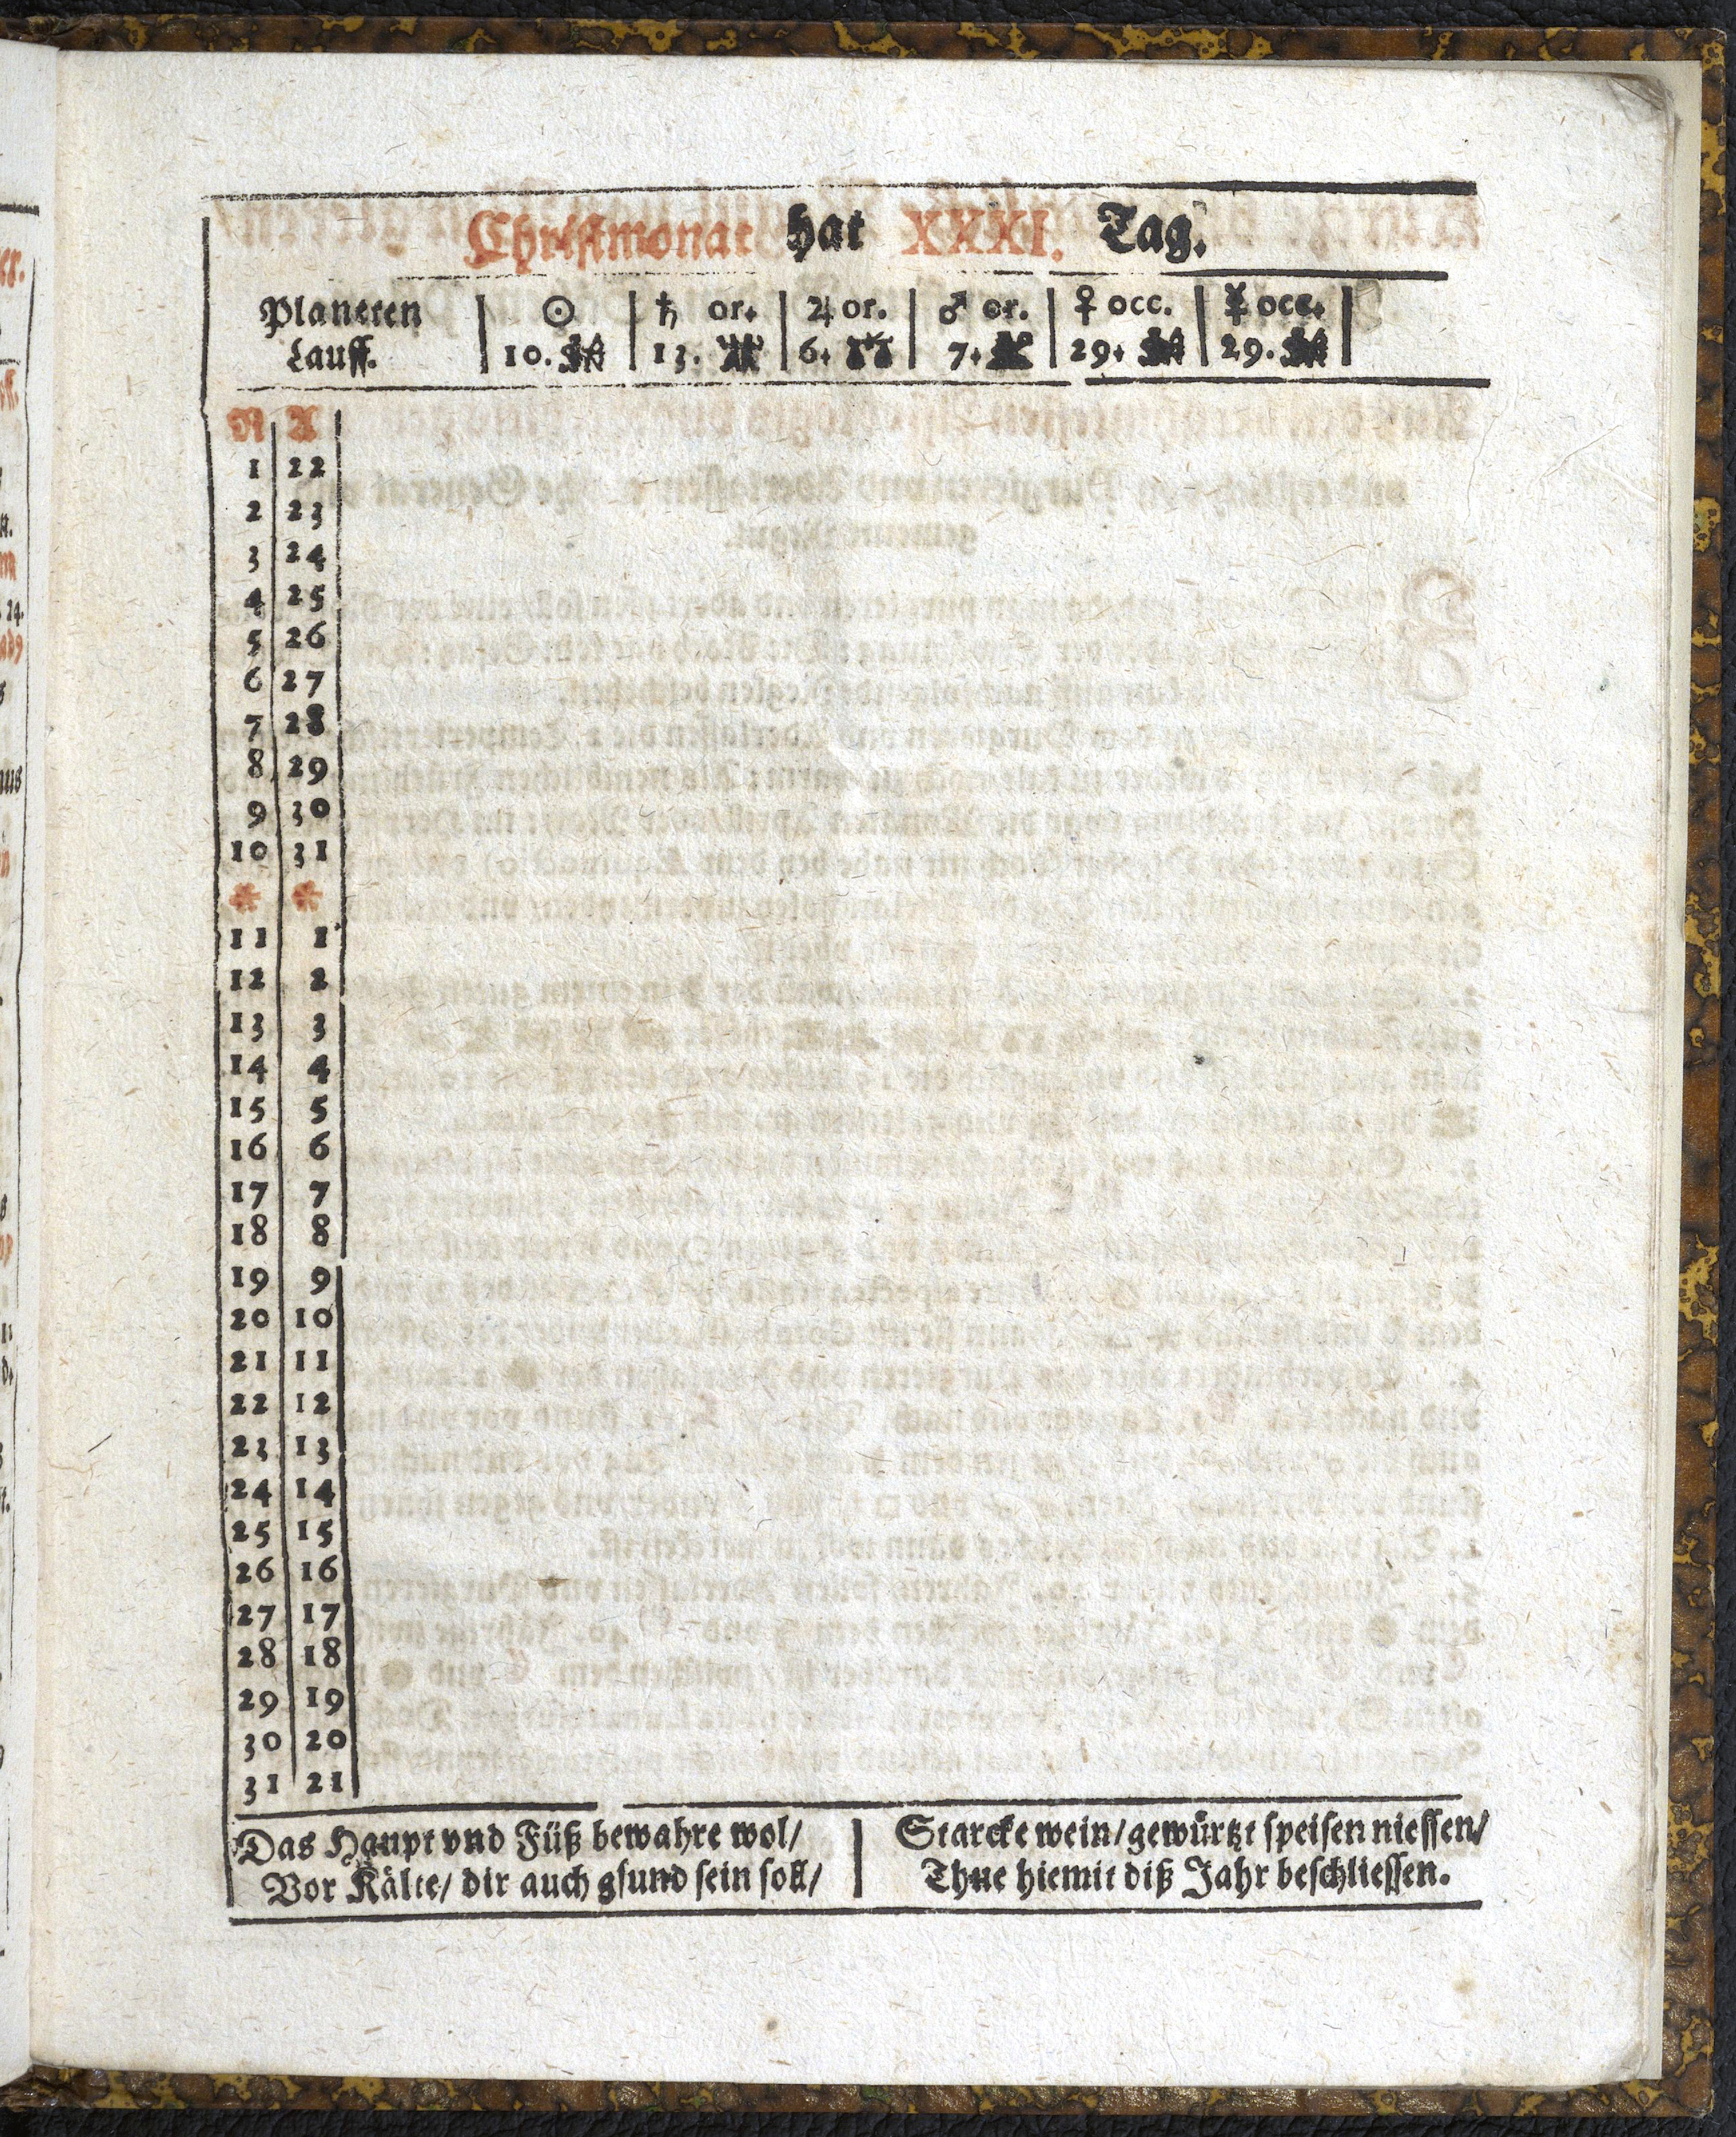 Christmonat hat XXXI. Tag.
Planeten | ☉ | ♄ or. | ♃ or. | ♂ or. | ♀ occ. | ☿ occ.
Lauff. | 10. | 13. | 6. | 7. | 29. | 29.
N A
1 22
2 23
3 24
4 25
5 26
6 27
7 28
8 29
9 30
10 31
* *
11 1
12 2
13 3
14 4
15 5
16 6
17 7
18 8
19 9
20 10
21 11
22 12
23 13
24 14
25 15
26 16
27 17
28 18
29 19
30 20
31 21
Das Haupt vnd Füß bewahre wol/
Vor Kälte/ dir auch gsund sein soll/
Starcke wein/gewürtzt speisen niessen/
Thue hiemit diß Jahr beschliessen.